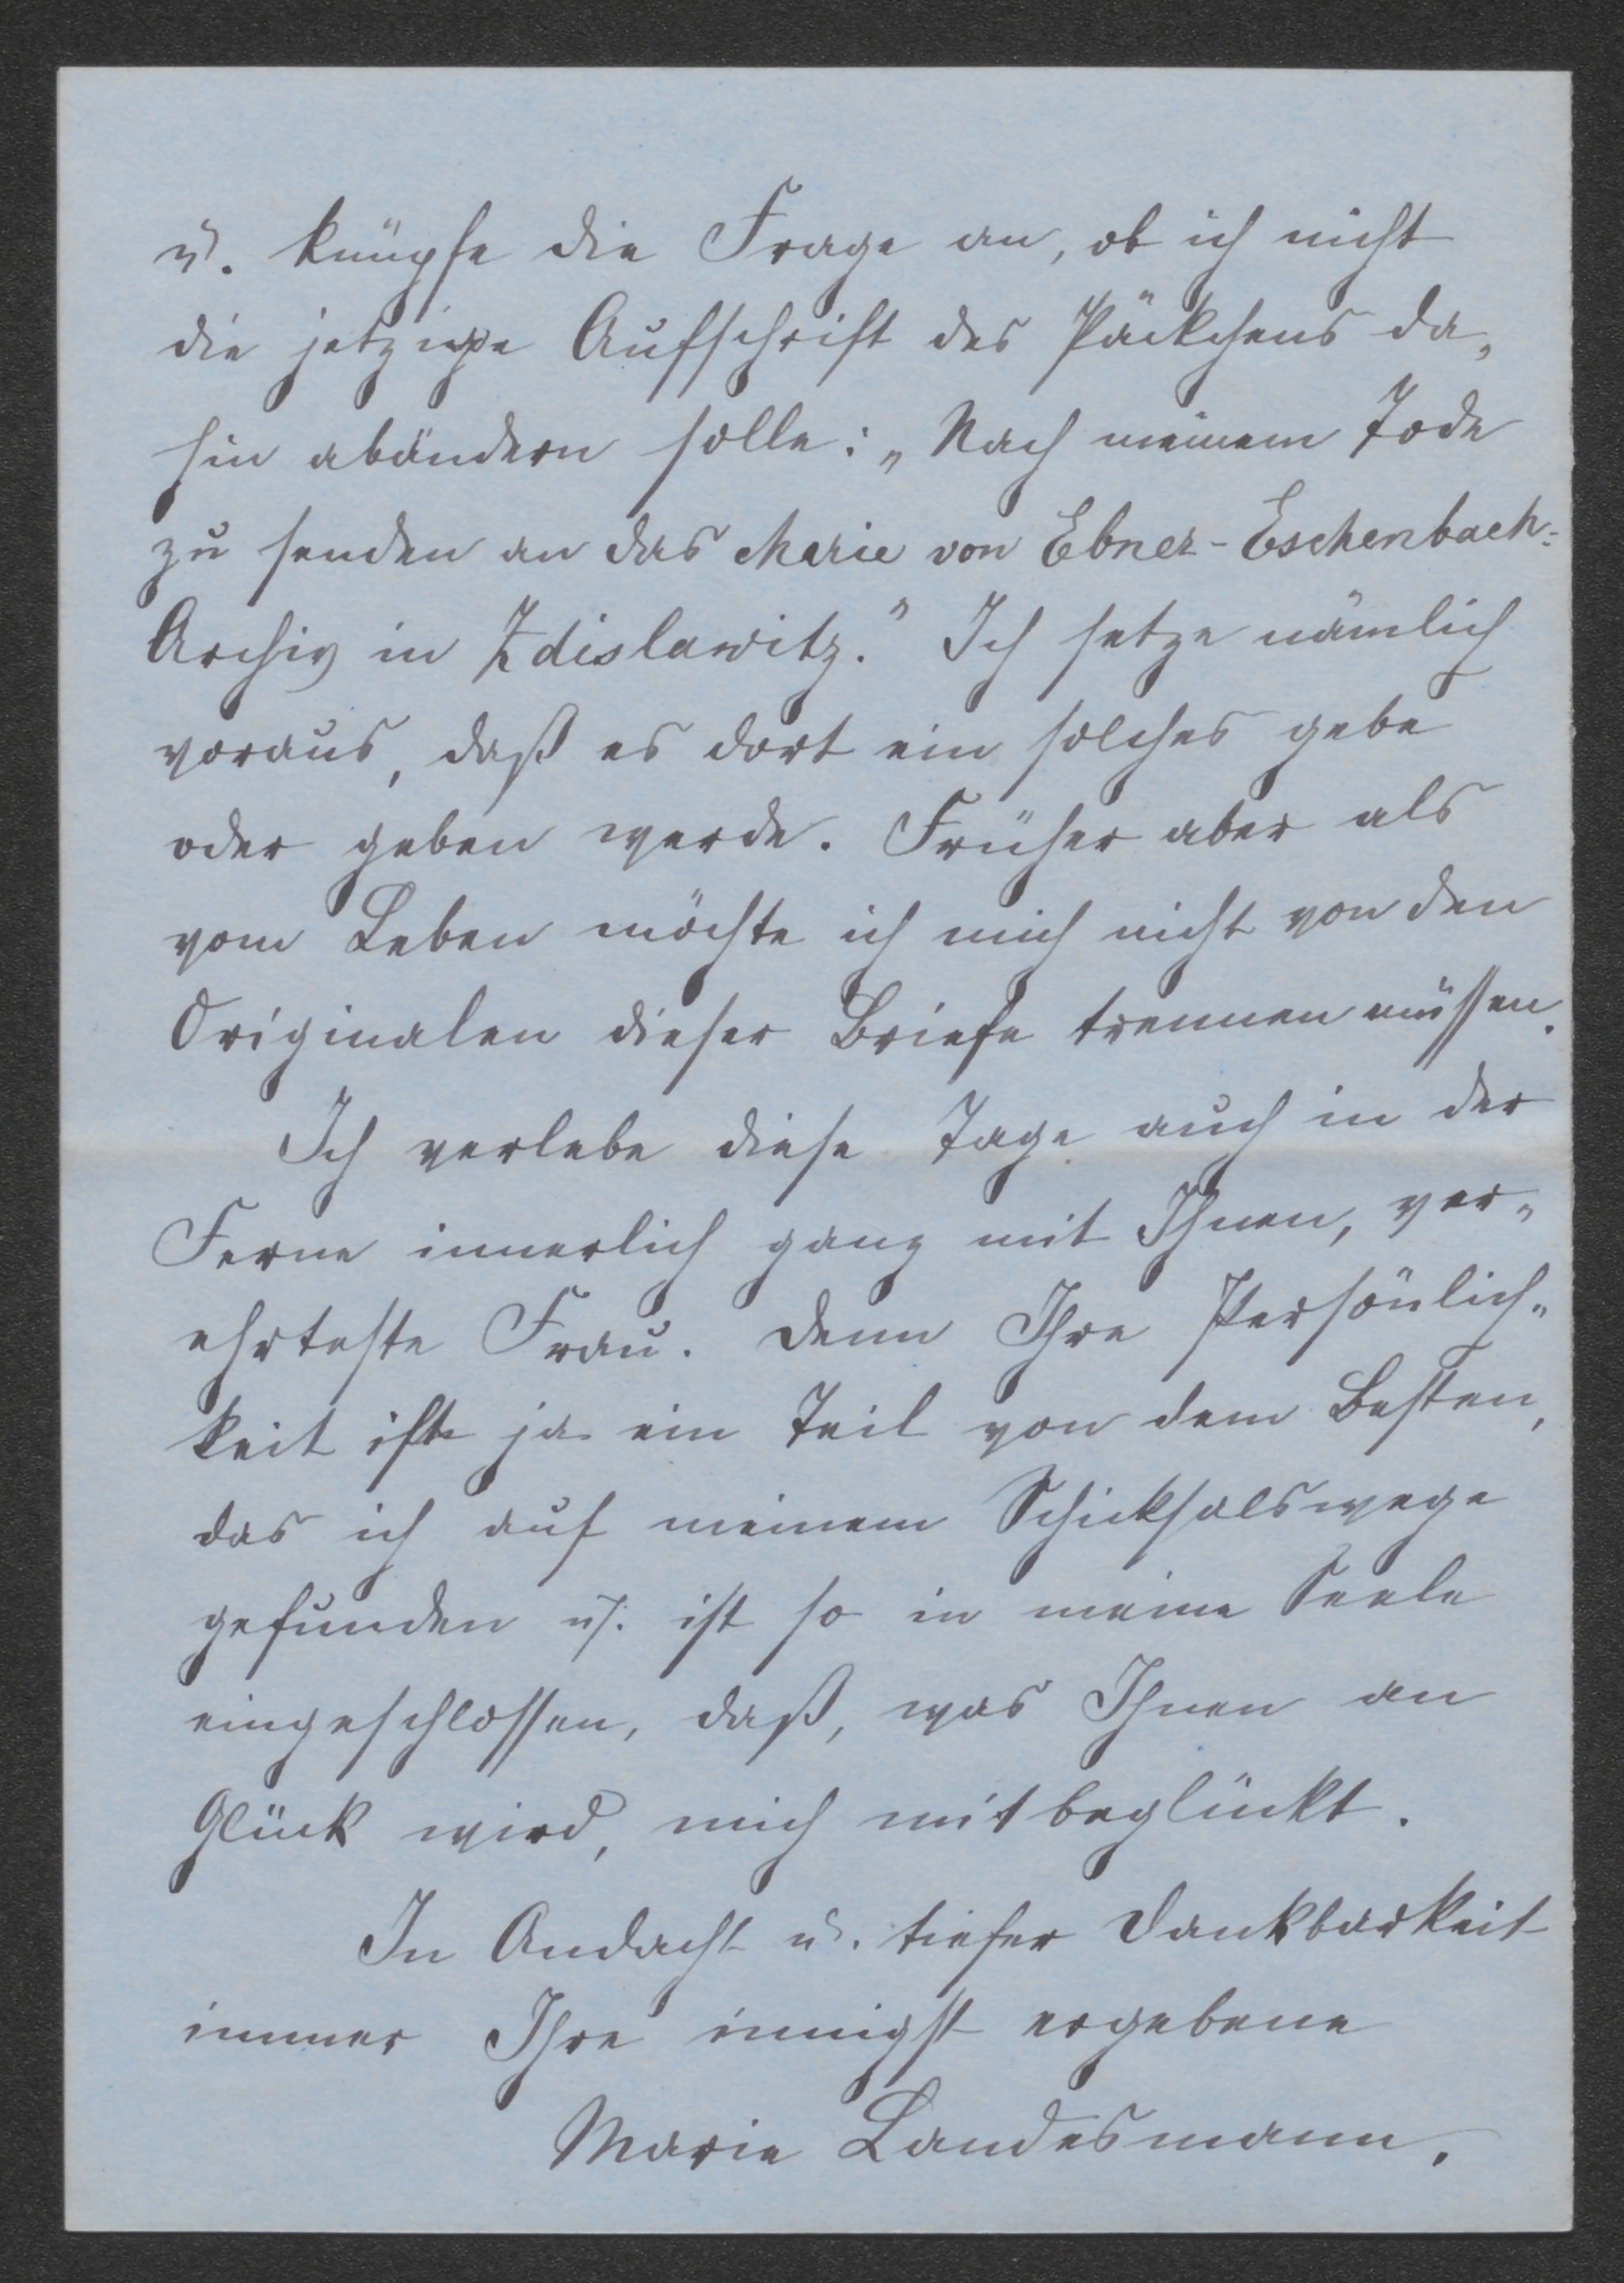 u. knüpfe die Frage an, ob ich nicht
die jetzige Aufschrift des Päckchens da-
hin abändern solle: „Nach meinem Tode
zu senden an das Marie von Ebner-Eschenbach-
Archiv in Zdislawitz." Ich setze nämlich
voraus, daß es dort ein solches gebe
oder geben werde. Früher aber als
vom Leben möchte ich mich nicht von den
Originalen dieser Briefe trennen müssen.
Ich verlebe diese Tage auch in der
Ferne innerlich ganz mit Ihnen, ver-
ehrteste Frau. Denn Ihre Persönlich-
keit ist ja ein Teil von dem Besten,
das ich auf meinem Schicksalswege
gefunden u. ist so in meine Seele
eingeschlossen, daß, was Ihnen an
Glück wird, mich mitbeglückt.
In Andacht u. tiefer Dankbarkeit
immer Ihre innigst ergebene
Marie Landesmann.